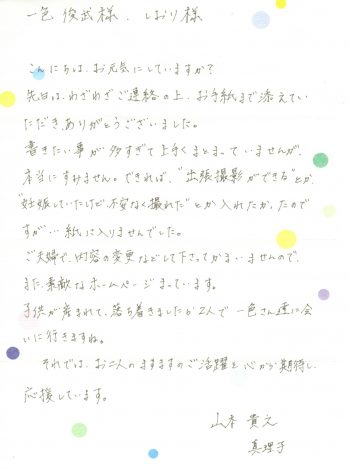 一色 俊武様、しおり様
こんにちは、お元気にしていますか？
先日は、わざわざご連絡の上、お手紙まで添えてい
ただき、ありがとうございました。
書きたい事が多すぎて上手くまとまっていませんが、
本当にすみません。できれば、"出張撮影ができる"とか、
"妊娠していたけど不安なく撮れた"とか入れたか、たので
すが…紙に入りませんでした。
ご夫婦で、内容の変更などして下さってかまいませんので、
また、素敵なホームページまっています。
子供が産まれて、落ち着きましたら2人で一色さん達に会
いに行きますね。
それでは、お二人のますますのご活躍を心から期待し、
応援しています。
山本 貴之
真理子